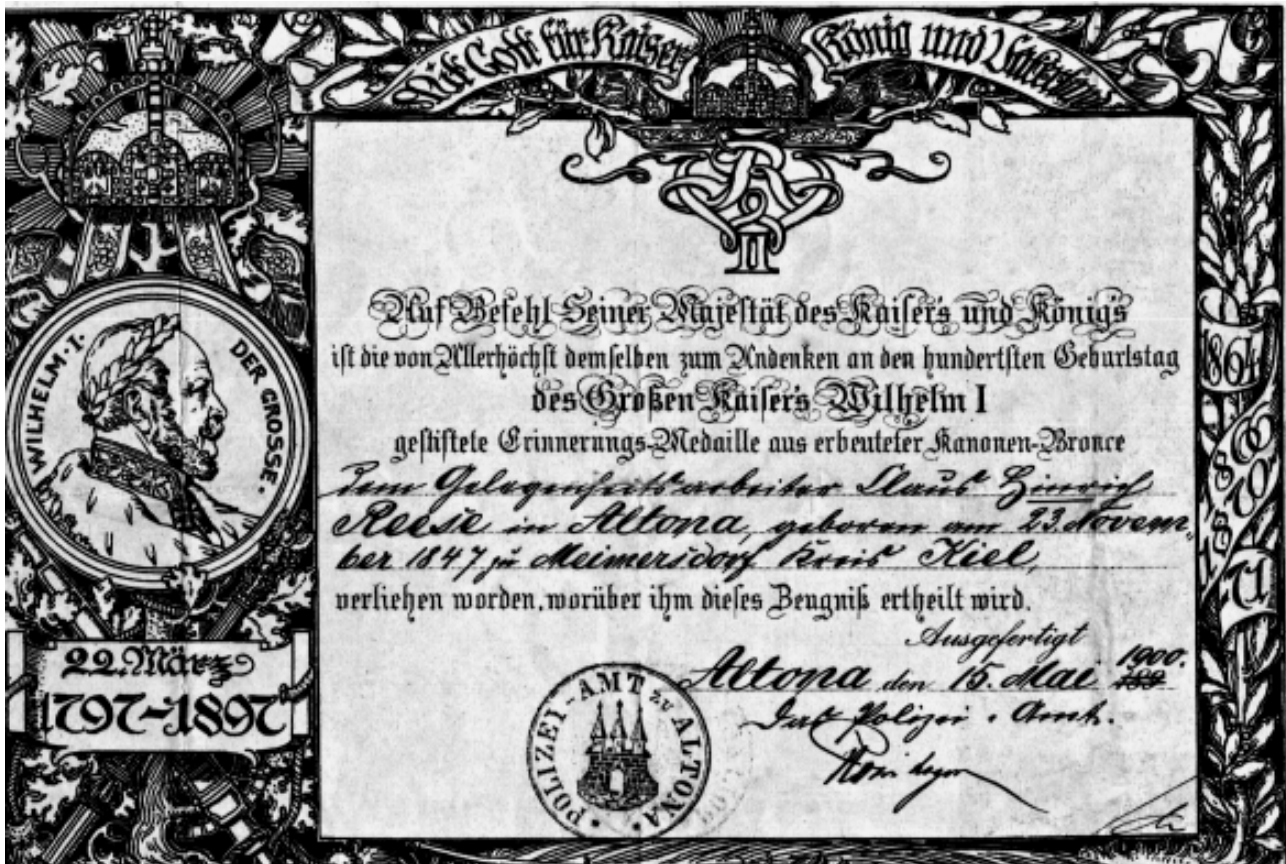 Mit Gott für Kaiser König und Vaterland
WILHELM·I·
DER GROSSE·
22. März
1797-1897
Auf Befehl Seiner Majestät des Kaisers und Königs
ist die von Allerhöchst demselben zum Andenken an den hundertsten Geburtstag
des Großen Kaisers Wilhelm I
gestiftete Erinnerungs-Medaille aus erbeuteter Kanonen-Bronce
dem Gelegenheitsarbeiter Claus Hinrich
Reese in Altona, geboren am 23. Novem-
ber 1847 zu Meimersdorf Kreis Kiel,
verliehen worden, worüber ihm dieses Zeugniß ertheilt wird.
Ausgefertigt
Altona den 15. Mai 1900.
189
Das Polizei-Amt.
·POLIZEI-AMT ZU ALTONA·
1864
1866
1870
71